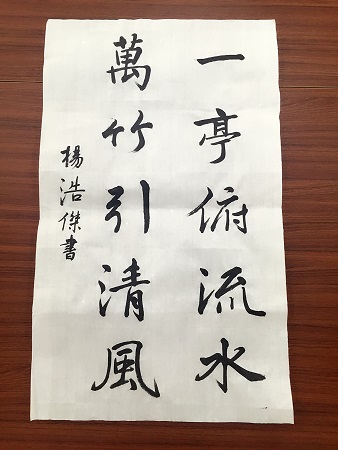 一亭俯流水
萬竹引清風
楊浩傑書